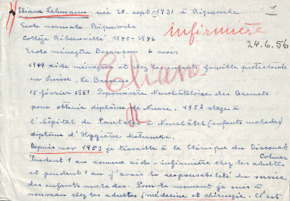 Eliane Lehmann née 20 sept. 1931 à Riquewihr
1
infirmière
Ecole normale Riquewihr
24.6.56
Collège Ribeauvillé 1945-1946
Ecole ménagère 6 mois
1949 aide ménagère et des enfants famille protestante
en Suisse.
Eliane
15 février 1951 Pouponnière Neuchâteloise des Brenets
pour obtenir diplôme de Nurse. 1952 stage à
l'hôpital de Neuchâtel (enfants malades)
diplôme d'Hygiène Maternelle.
Depuis nov 1953 je travaille à la Clinique du Diaconat
Colmar
Pendant 1 an comme aide-infirmière chez les adultes
et pendant 1 an j'avais la responsabilité du service
des enfants malades. Pour le moment je suis à
nouveau chez les adultes (médecine et chirurgie). C'est